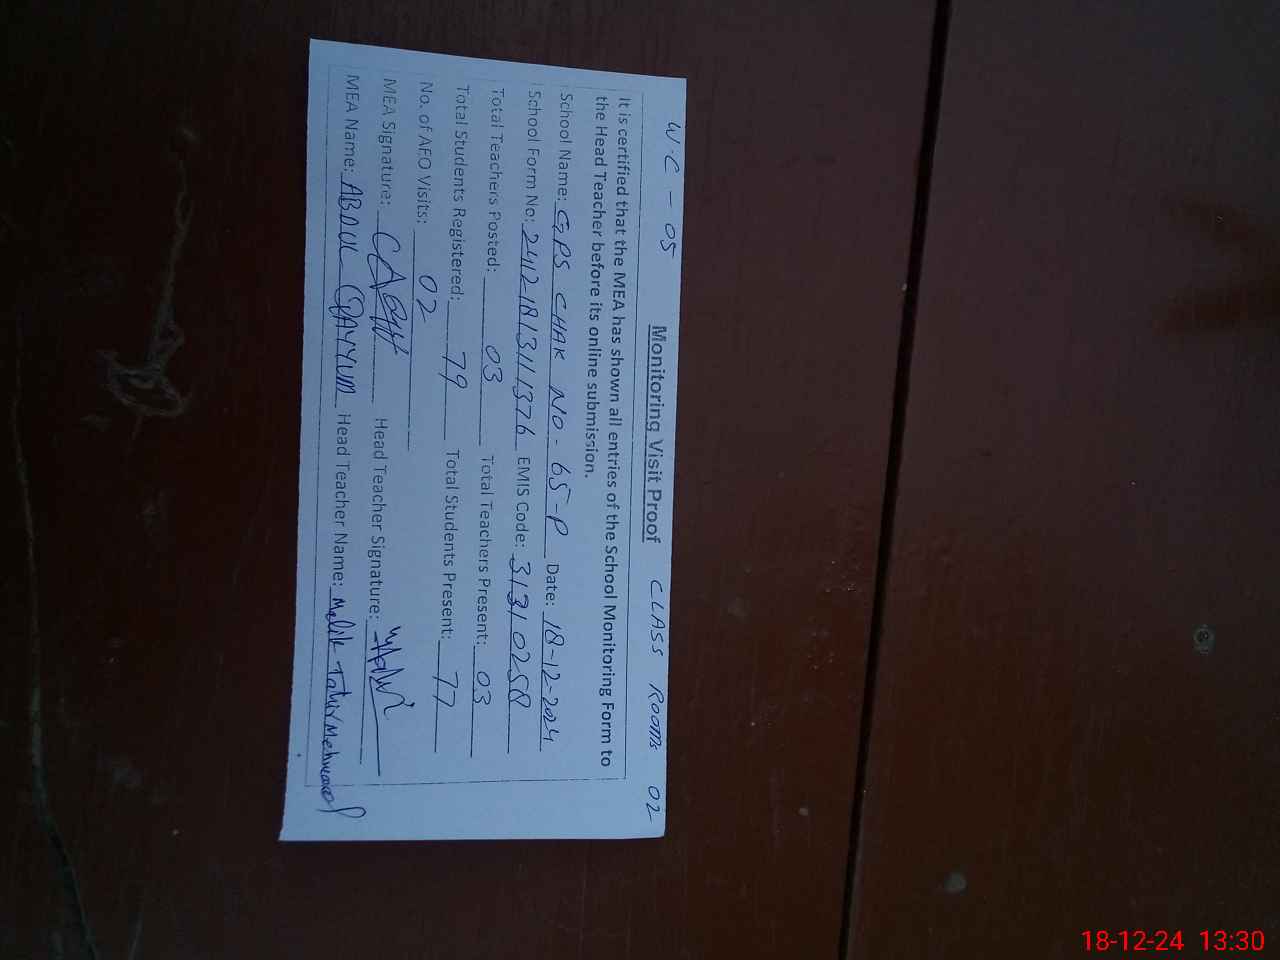 W.C - 05 CLASS ROOMS 02
Monitoring Visit Proof
It is certified that the MEA has shown all entries of the School Monitoring Form to
the Head Teacher before its online submission.
School Name: GPS CHAK NO - 65-P Date: 18-12-2024
School Form No: 2412181311376 EMIS Code: 31310258
Total Teachers Posted: 03 Total Teachers Present: 03
Total Students Registered: 79 Total Students Present: 77
No. of AEO Visits: 02
MEA Signature: Head Teacher Signature:
MEA Name: ABDUL QAYYUM Head Teacher Name: Malik Tahir Mehmood
18-12-24 13:30